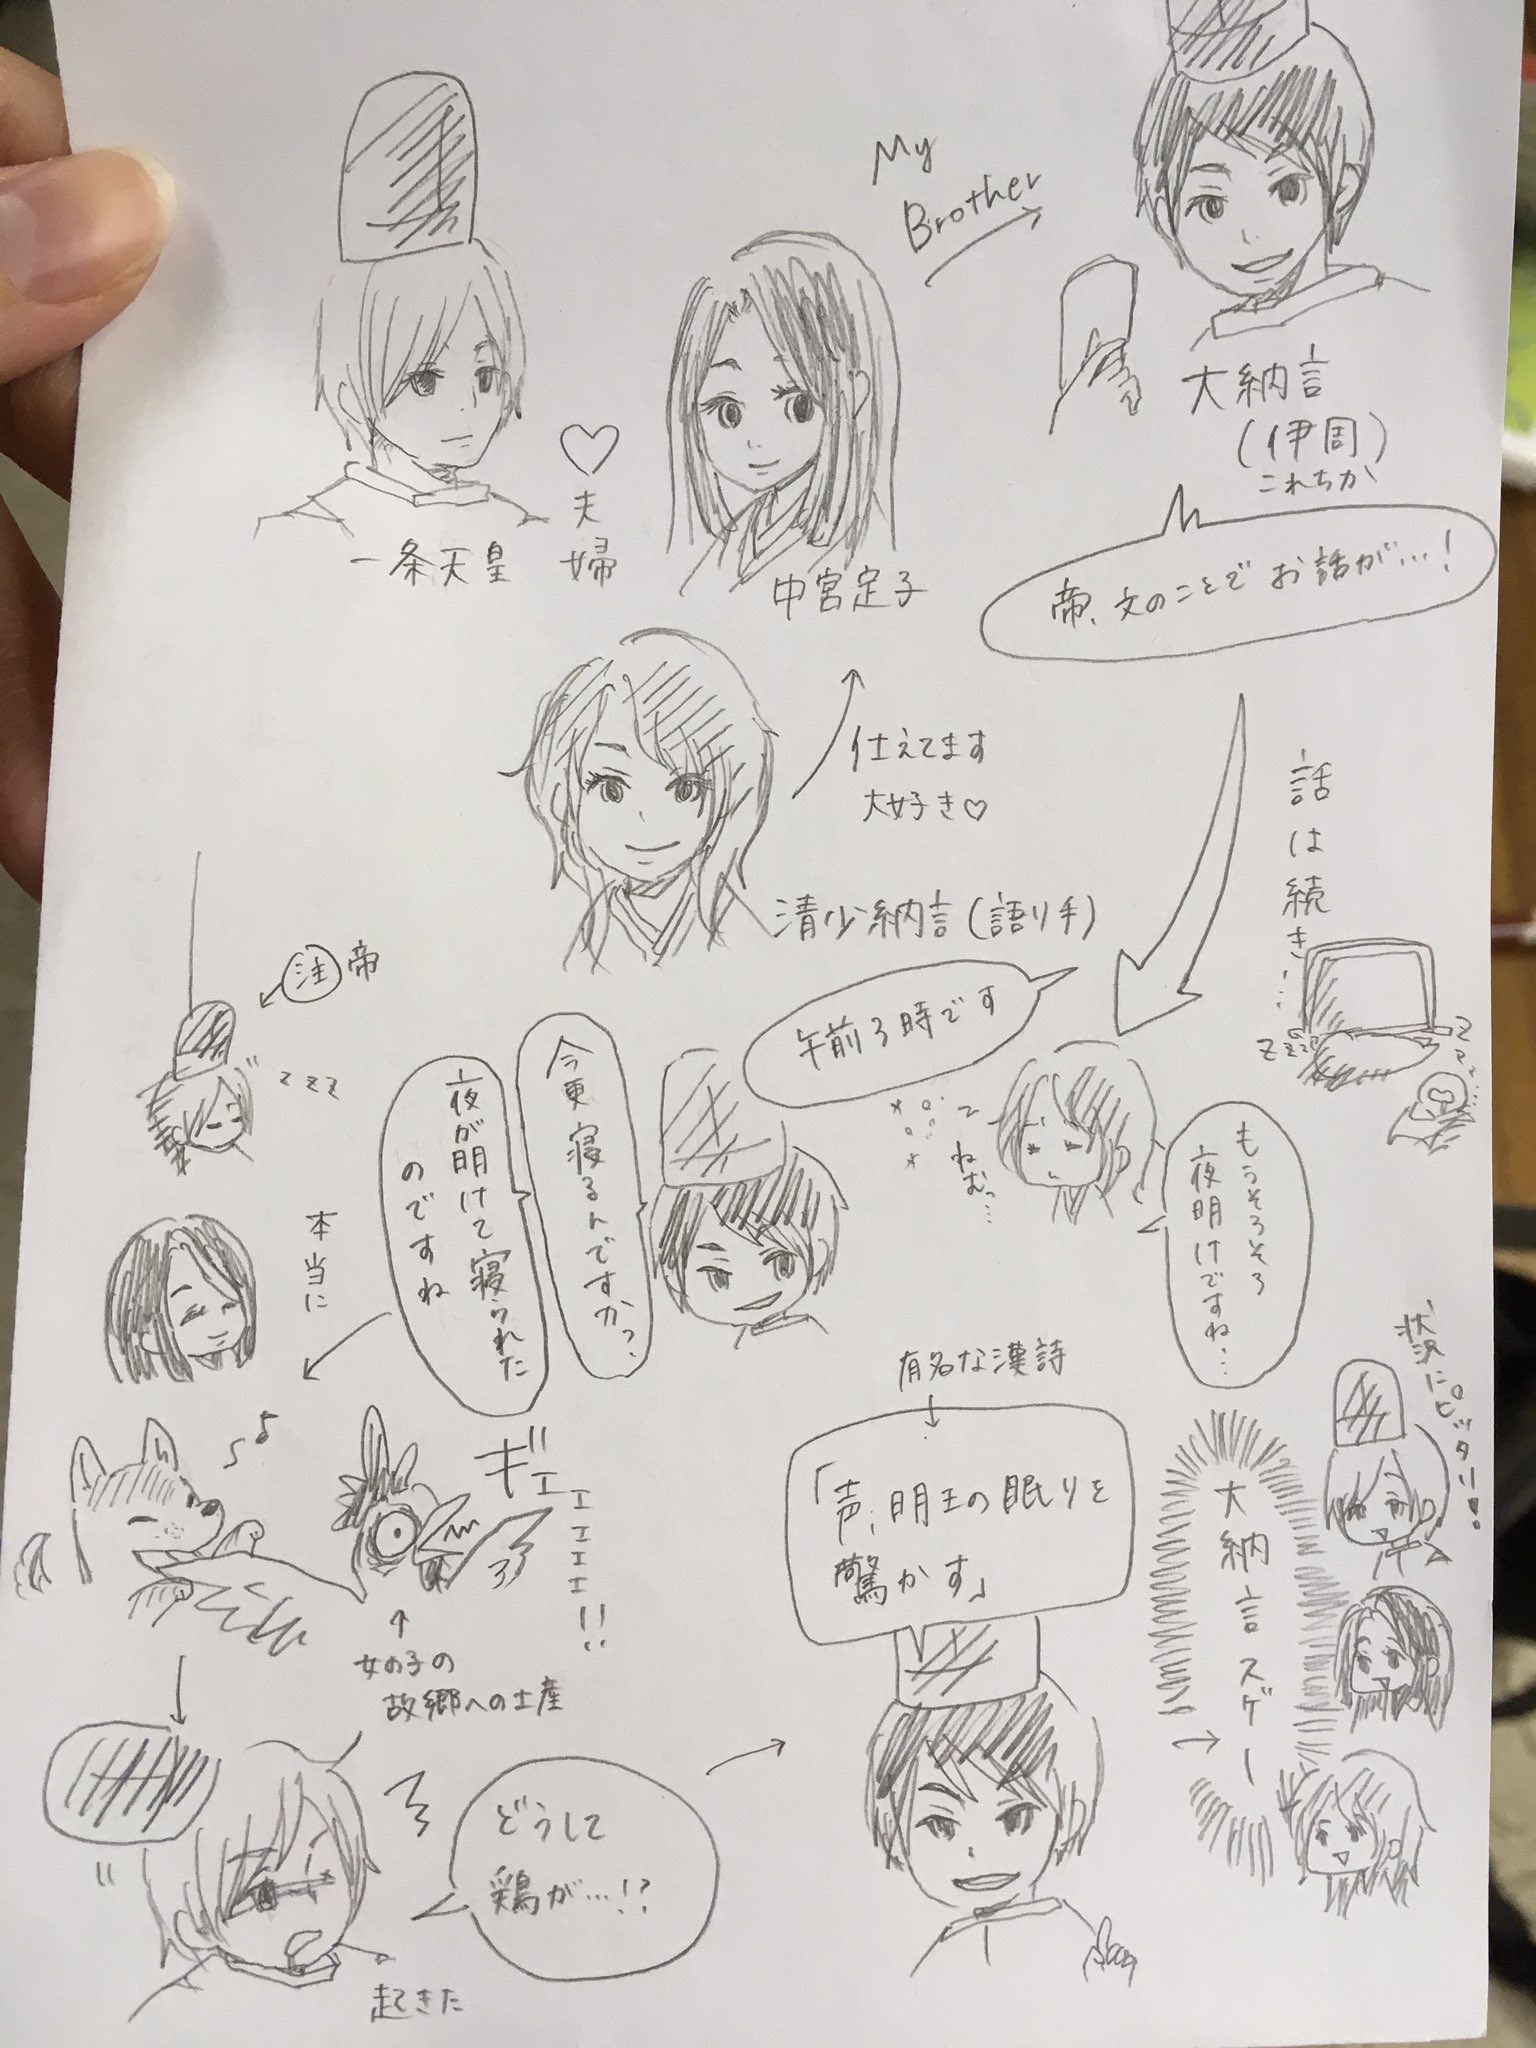 My
Brother
大納言
(伊周)
これちか
一条天皇
♡
夫婦
中宮定子
帝、文のことでお話が…!
仕えてます
大好き♡
清少納言(語り手)
話は続き…
zzz
もうそろそろ
夜明けですね…
午前3時です
ねむっ…
今更寝るんですかっ
夜が明けて寝られた
のですね
注 帝
zzz
本当に
♪
ギエエエエエ!!
女の子の
故郷への土産
どうして
鶏が…!?
起きた
有名な漢詩
「声、明王の眠りを
驚かす」
状況にピッタリ!!
大納言スゲー